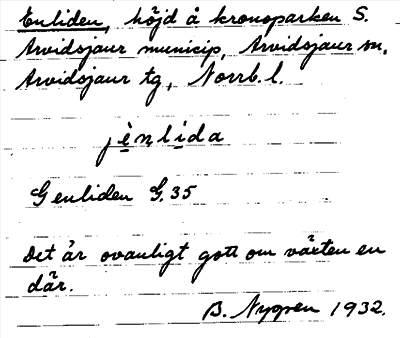 Enliden, höjd å kronoparken S.
Arvidsjaur municip, Arvidsjaur sn,
Arvidsjaur tg, Norrb. l.
jènlida
Genliden G.35
Det är ovanligt gott om växten en
där.
B. Nygren 1932.